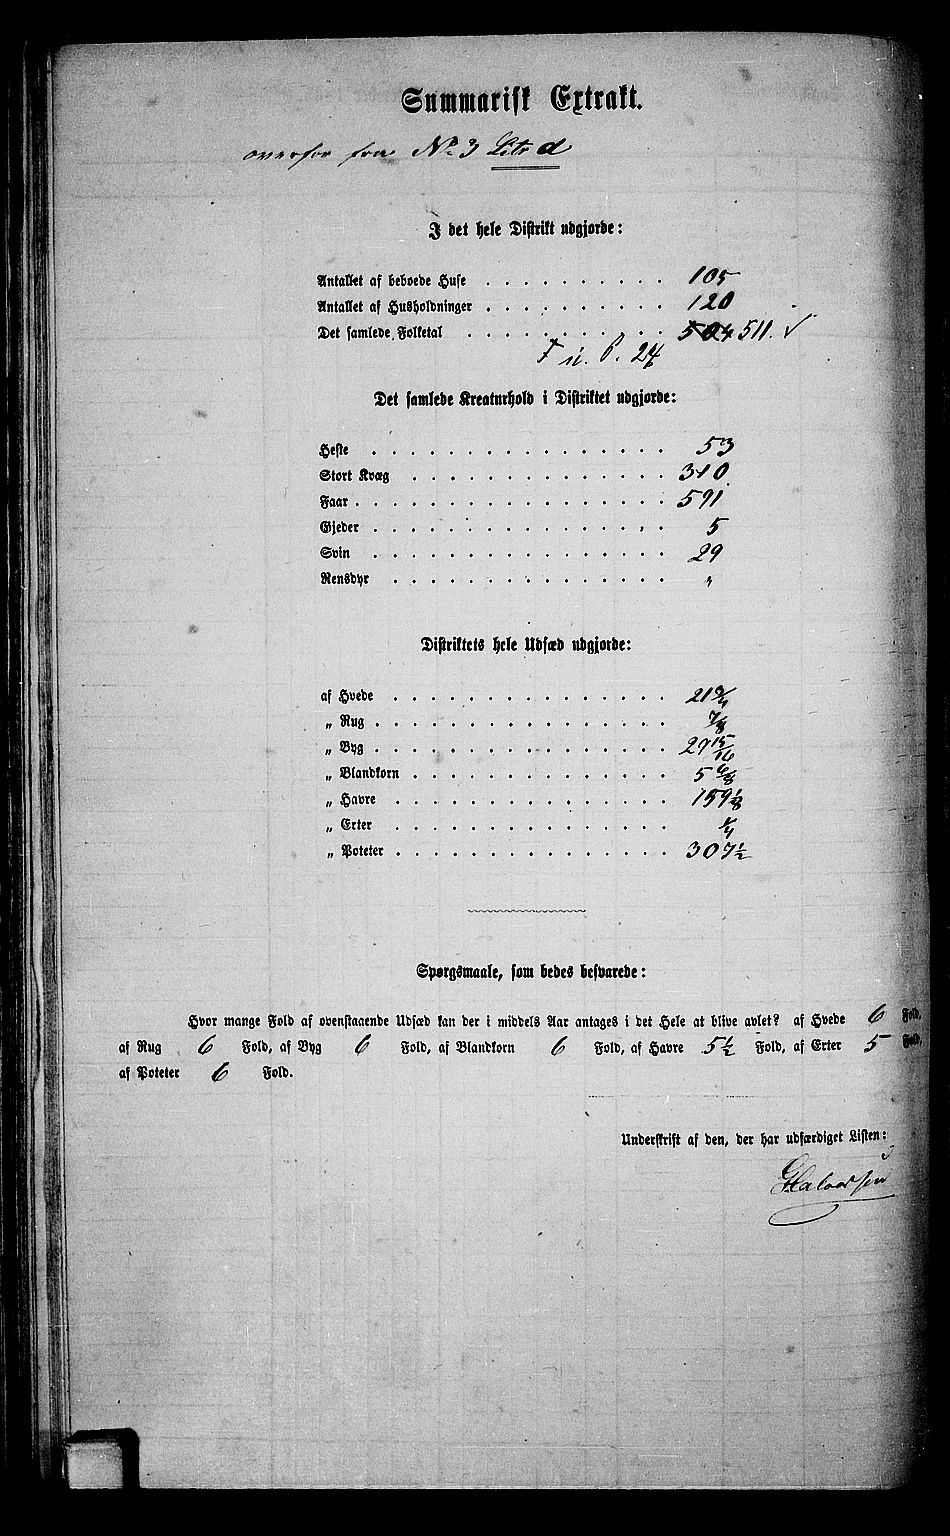 Summarisk Extrakt.
overfor fra No 3 Litr d
I det hele Distrikt udgjorde:
Antallet af beboede Huse . . . . . . . . . 105
Antallet af Husholdninger . . . . . . . . . 120
Det samlede Folketal . . . . . . . . . . 504 511. ✓
F u. P. 24
Det samlede Kreaturhold i Distriktet udgjorde:
Heste . . . . . . . . . . . . . . . 53
Stort Kvæg . . . . . . . . . . . . . 310
Faar . . . . . . . . . . . . . . . 591
Gjeder . . . . . . . . . . . . . . . 5
Svin . . . . . . . . . . . . . . . 29
Rensdyr . . . . . . . . . . . . . . "
Distriktets hele Udsæd udgjorde:
af Hvede . . . . . . . . . . . . . . 21
„ Rug . . . . . . . . . . . . . . . 7/8
„ Byg . . . . . . . . . . . . . . . 29 15/16
„ Blandkorn . . . . . . . . . . . . . 5 6/8
„ Havre . . . . . . . . . . . . . . 159 1/8
„ Erter . . . . . . . . . . . . . .
„ Poteter . . . . . . . . . . . . . . 307 1/2
Spørgsmaale, som bedes besvarede:
Hvor mange Fold af ovenstaaende Udsæd kan der i middels Aar antages i det Hele at blive avlet? af Hvede 6 Fold,
af Rug 6 Fold, af Byg 6 Fold, af Blandkorn 6 Fold, af Havre 5 1/2 Fold, af Erter 5 Fold,
af Poteter 6 Fold.
Underskrift af den, der har udfærdiget Listen:
G Halvorsen